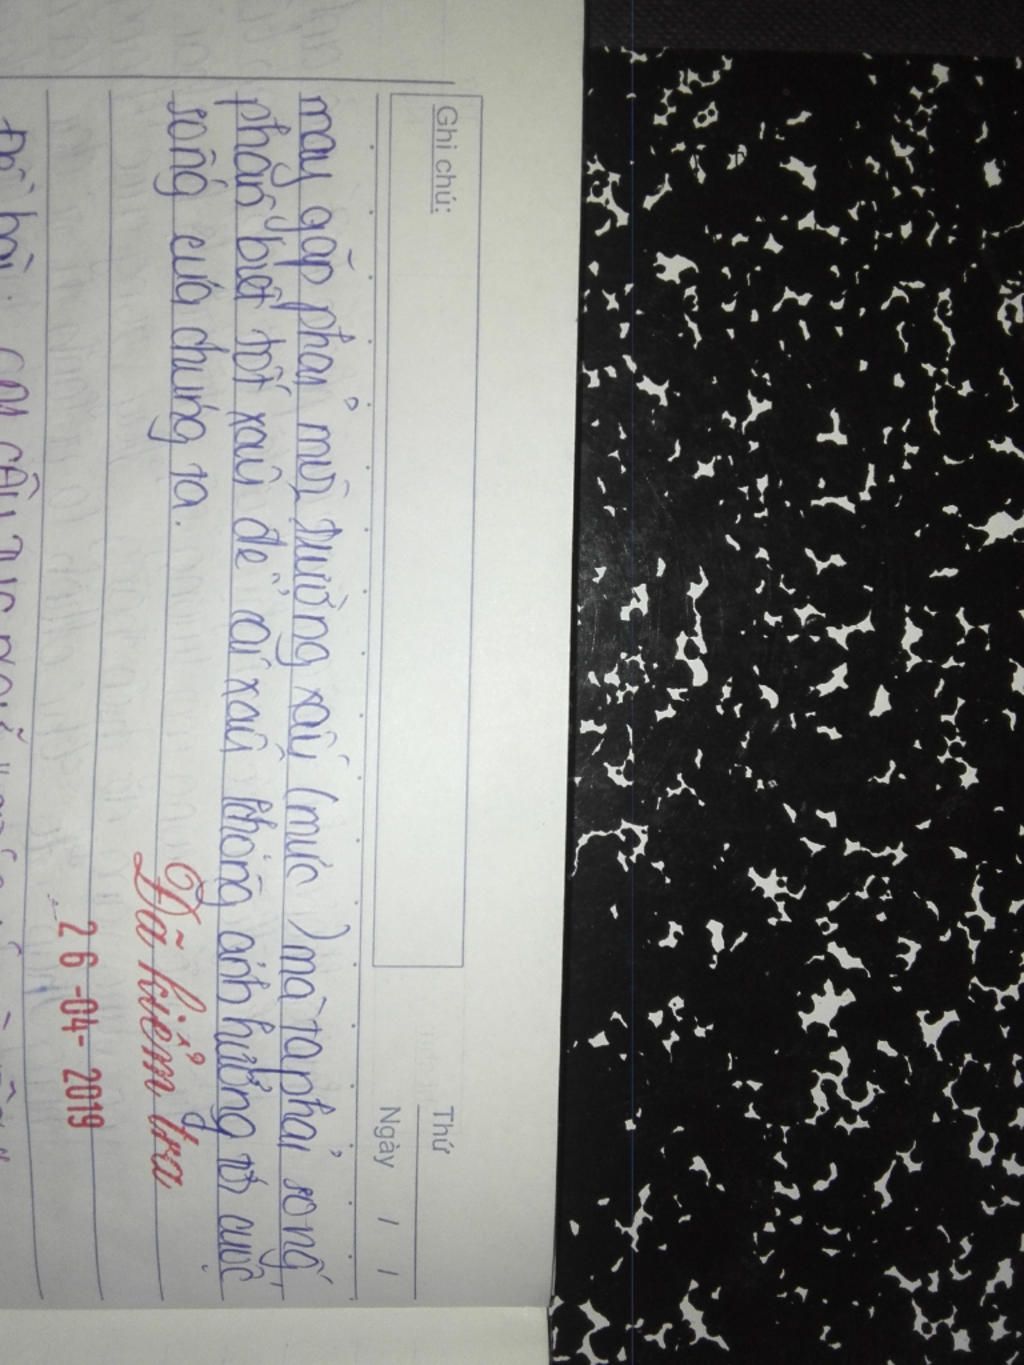 Ghi chú:
Thứ
Ngày / /
may gặp phải môi trường xấu (mực) mà ta phải sống
phân biệt tốt xấu để cái xấu không ảnh hưởng tới cuộc
sống của chúng ta.
Đã kiểm tra
26-04-2019
Đề bài: